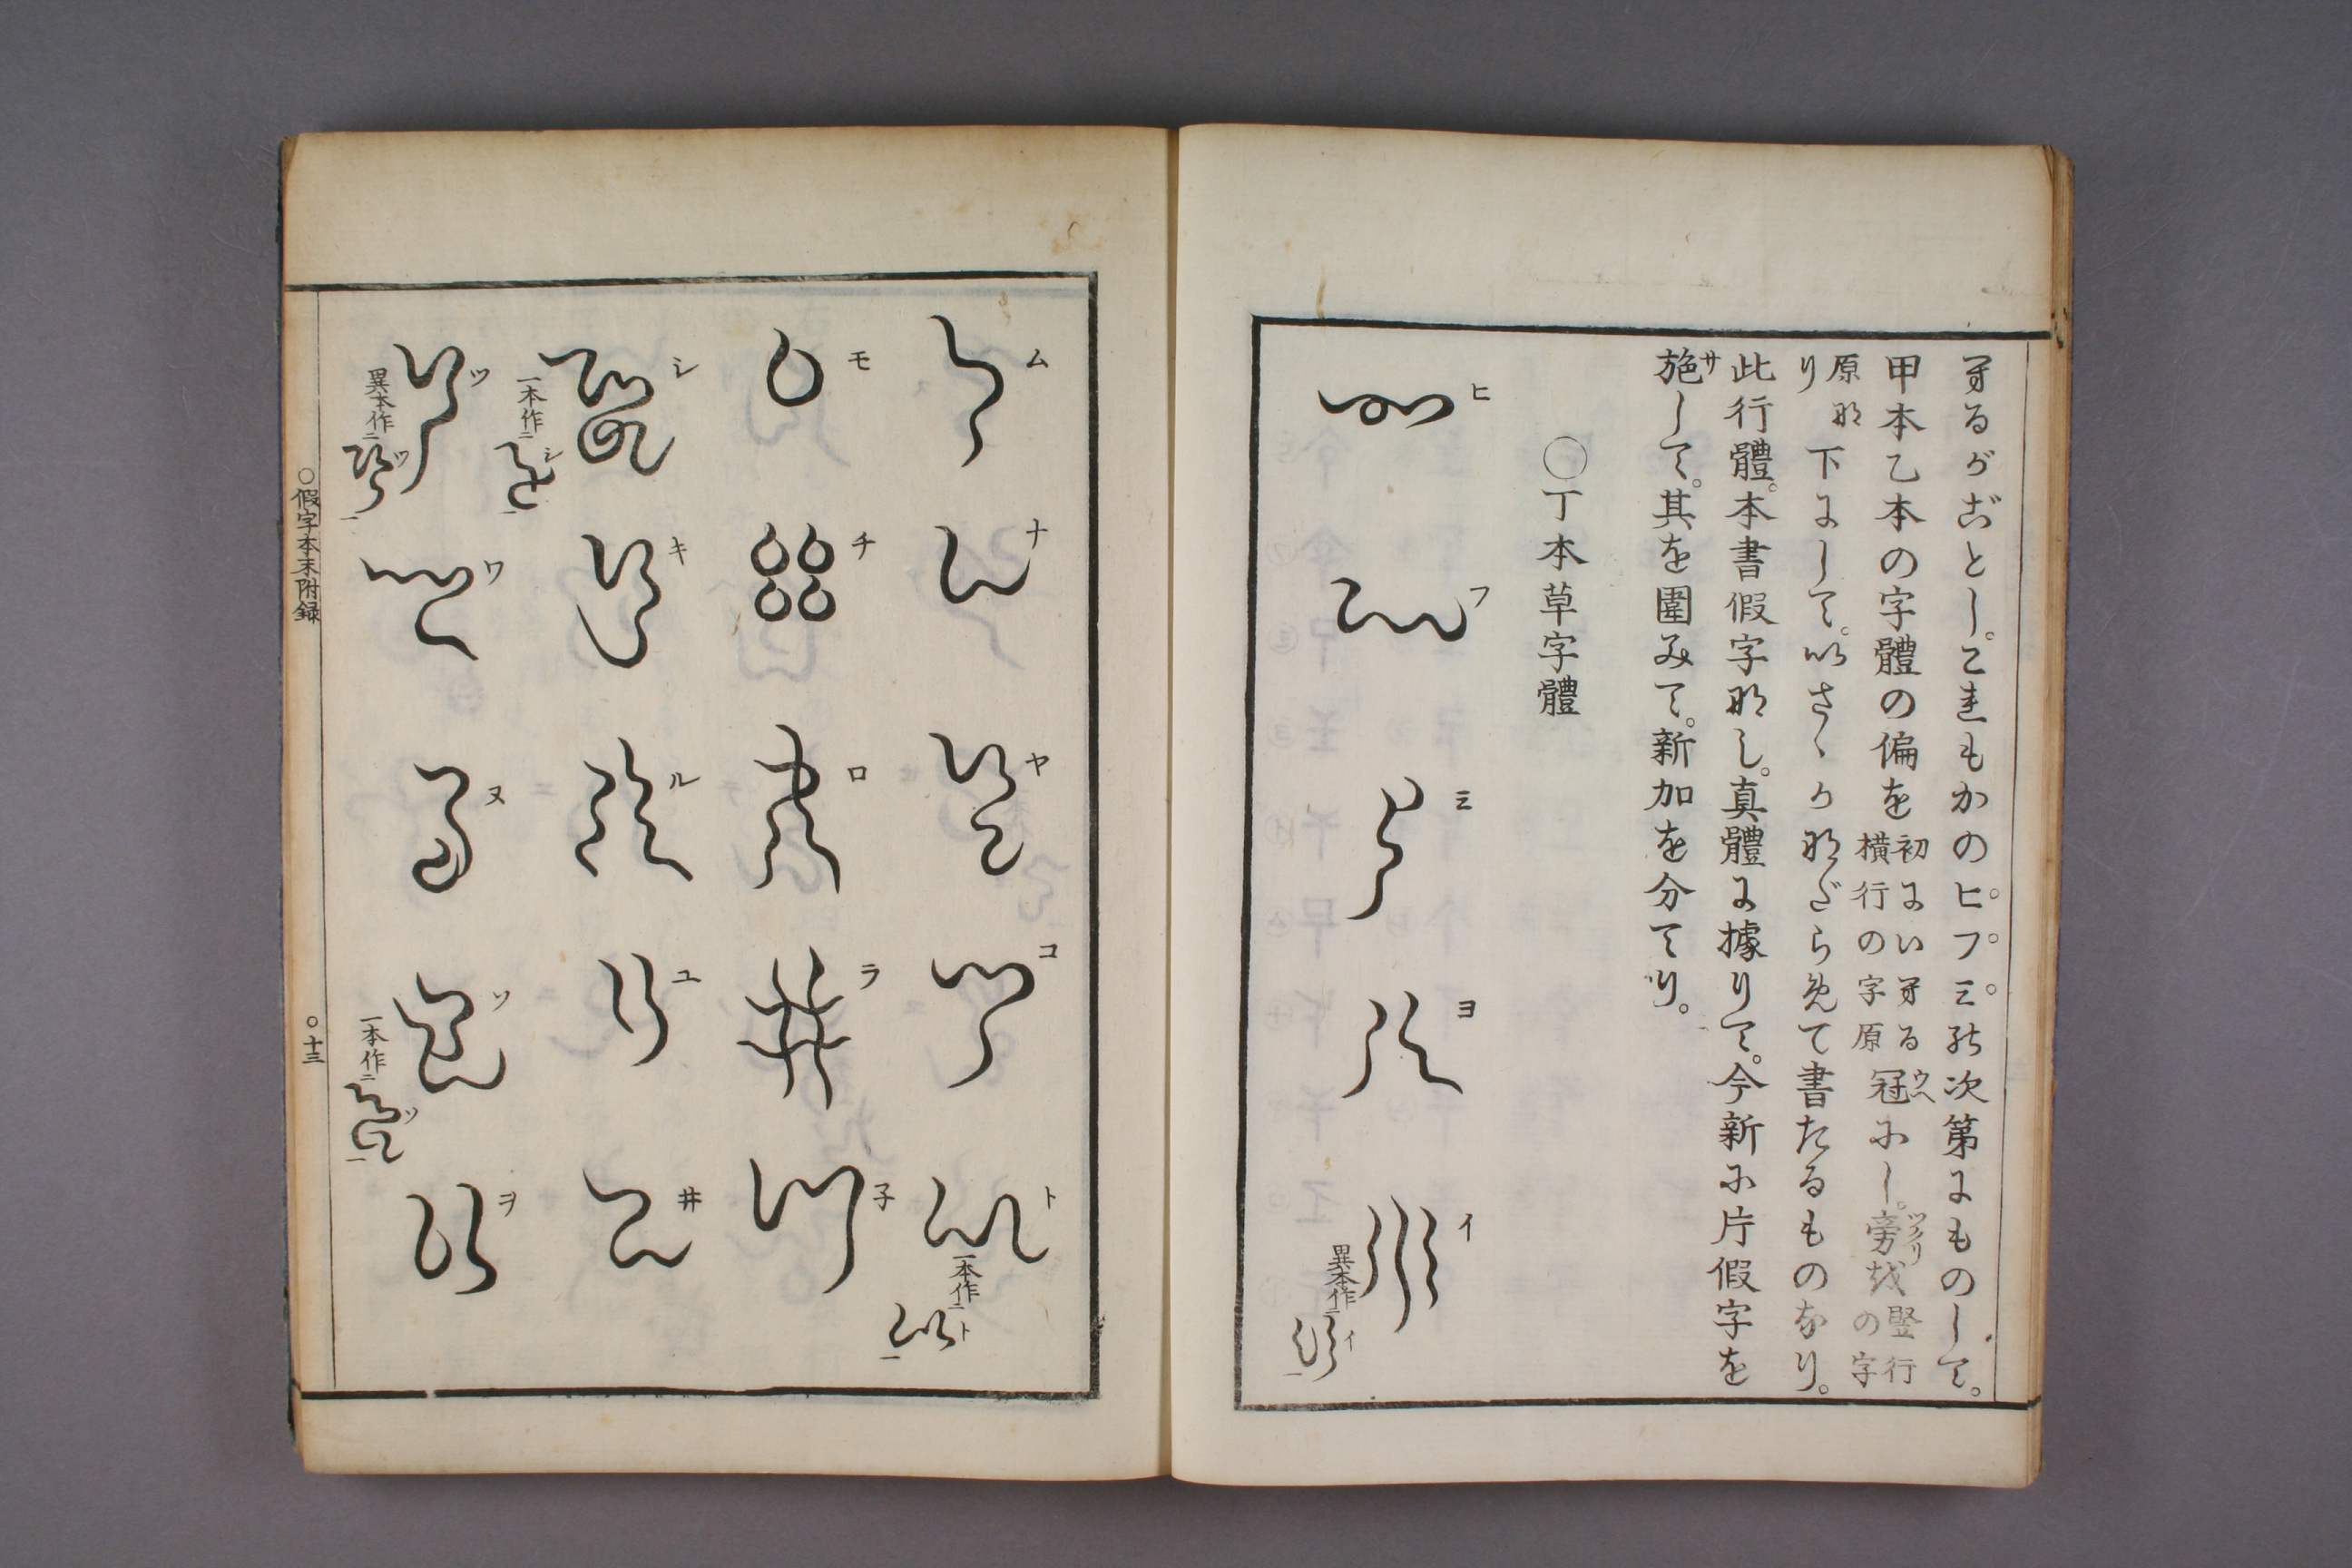 へるがごとし。これもかのヒ。フ。ミ。の次第にものして。
甲本乙本の字體の偏を初にいへる横行の字原冠にし。旁を竪行の字
原なり下にして。いさゝかなだらめて書たるものなり。
此行體。本書假字なし。真體に據りて。今新に片假字を
施して。其を圍みて。新加を分てり。
〇丁本草字體
ヒ フ ミ ヨ イ
異本作ニ イ一
ム ナ ヤ コ ト
一本作ニ ト一
モ チ ロ ラ 子
シ キ ル ユ 井
一本作ニ シ一
ツ ワ ヌ ソ ヲ
異本作ニ ツ一
一本作ニ ソ一
〇假字本末附録 〇十三